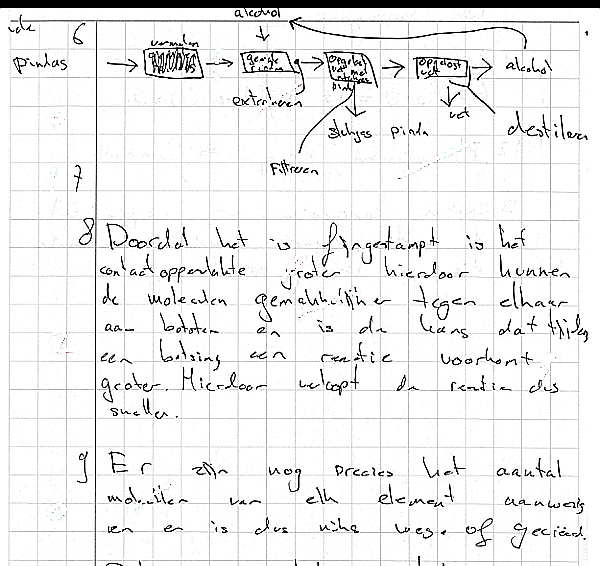 alcohol
6
pindas
vermalen
alcohol
extraheren
opgelost vet
vet
stukjes pinda
destileren
Filtreren
7
8 Doordat het is fijngestampt is het
contactoppervlakte groter hierdoor kunnen
de moleculen gemakkelijker tegen elkaar
aan botsten en is de kans dat tijdens
een botsing een reactie voorkomt
groter. Hierdoor verloopt de reactie dus
sneller.
9 Er zijn nog precies het aantal
moleculen van elk element aanwezig
en er is dus niks weg of